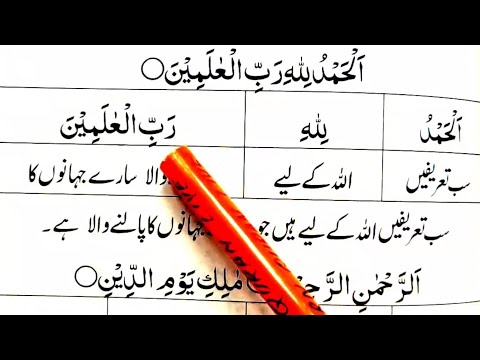 اَلْحَمْدُ لِلّٰهِ رَبِّ الْعٰلَمِيْنَ○
اَلْحَمْدُ لِلّٰهِ رَبِّ الْعٰلَمِيْنَ
سب تعریفیں اللہ کے لیے والا سارے جہانوں کا
سب تعریفیں اللہ کے لیے ہیں جو جہانوں کا پالنے والا ہے۔
اَلرَّحْمٰنِ مٰلِكِ يَوْمِ الدِّيْنِ○
QURAN